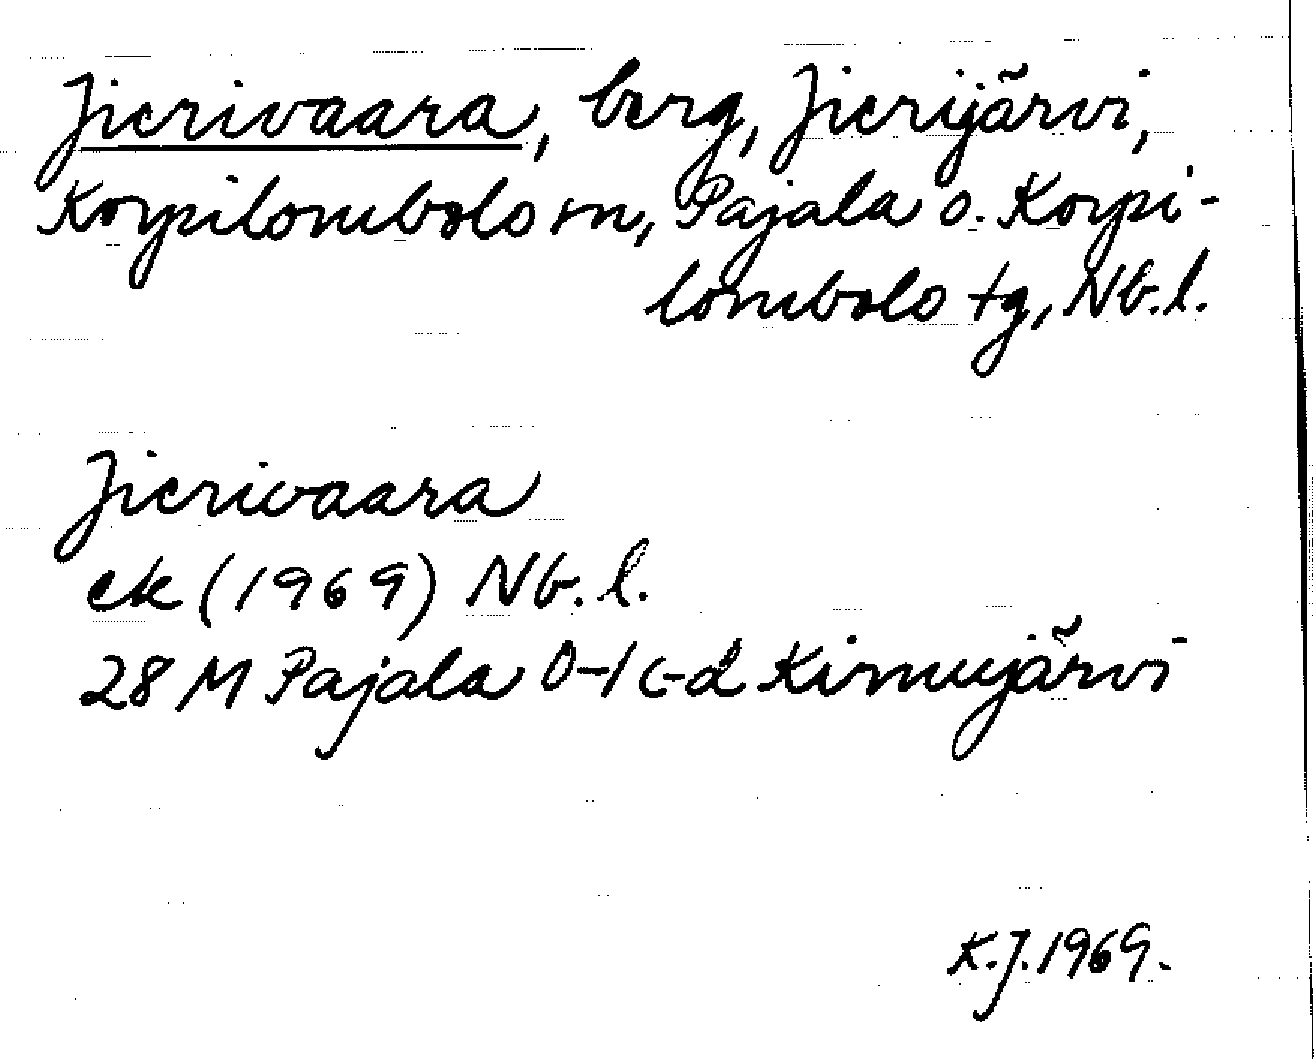 Jierivaara, berg, Jierijärvi,
Korpilombolo sn, Pajala o. Korpi-
lombolo tg, Nb.l.
Jierivaara
ek (1969) Nb.l.
28 M Pajala 0-1 c-d Kirnujärvi
K.J. 1969.